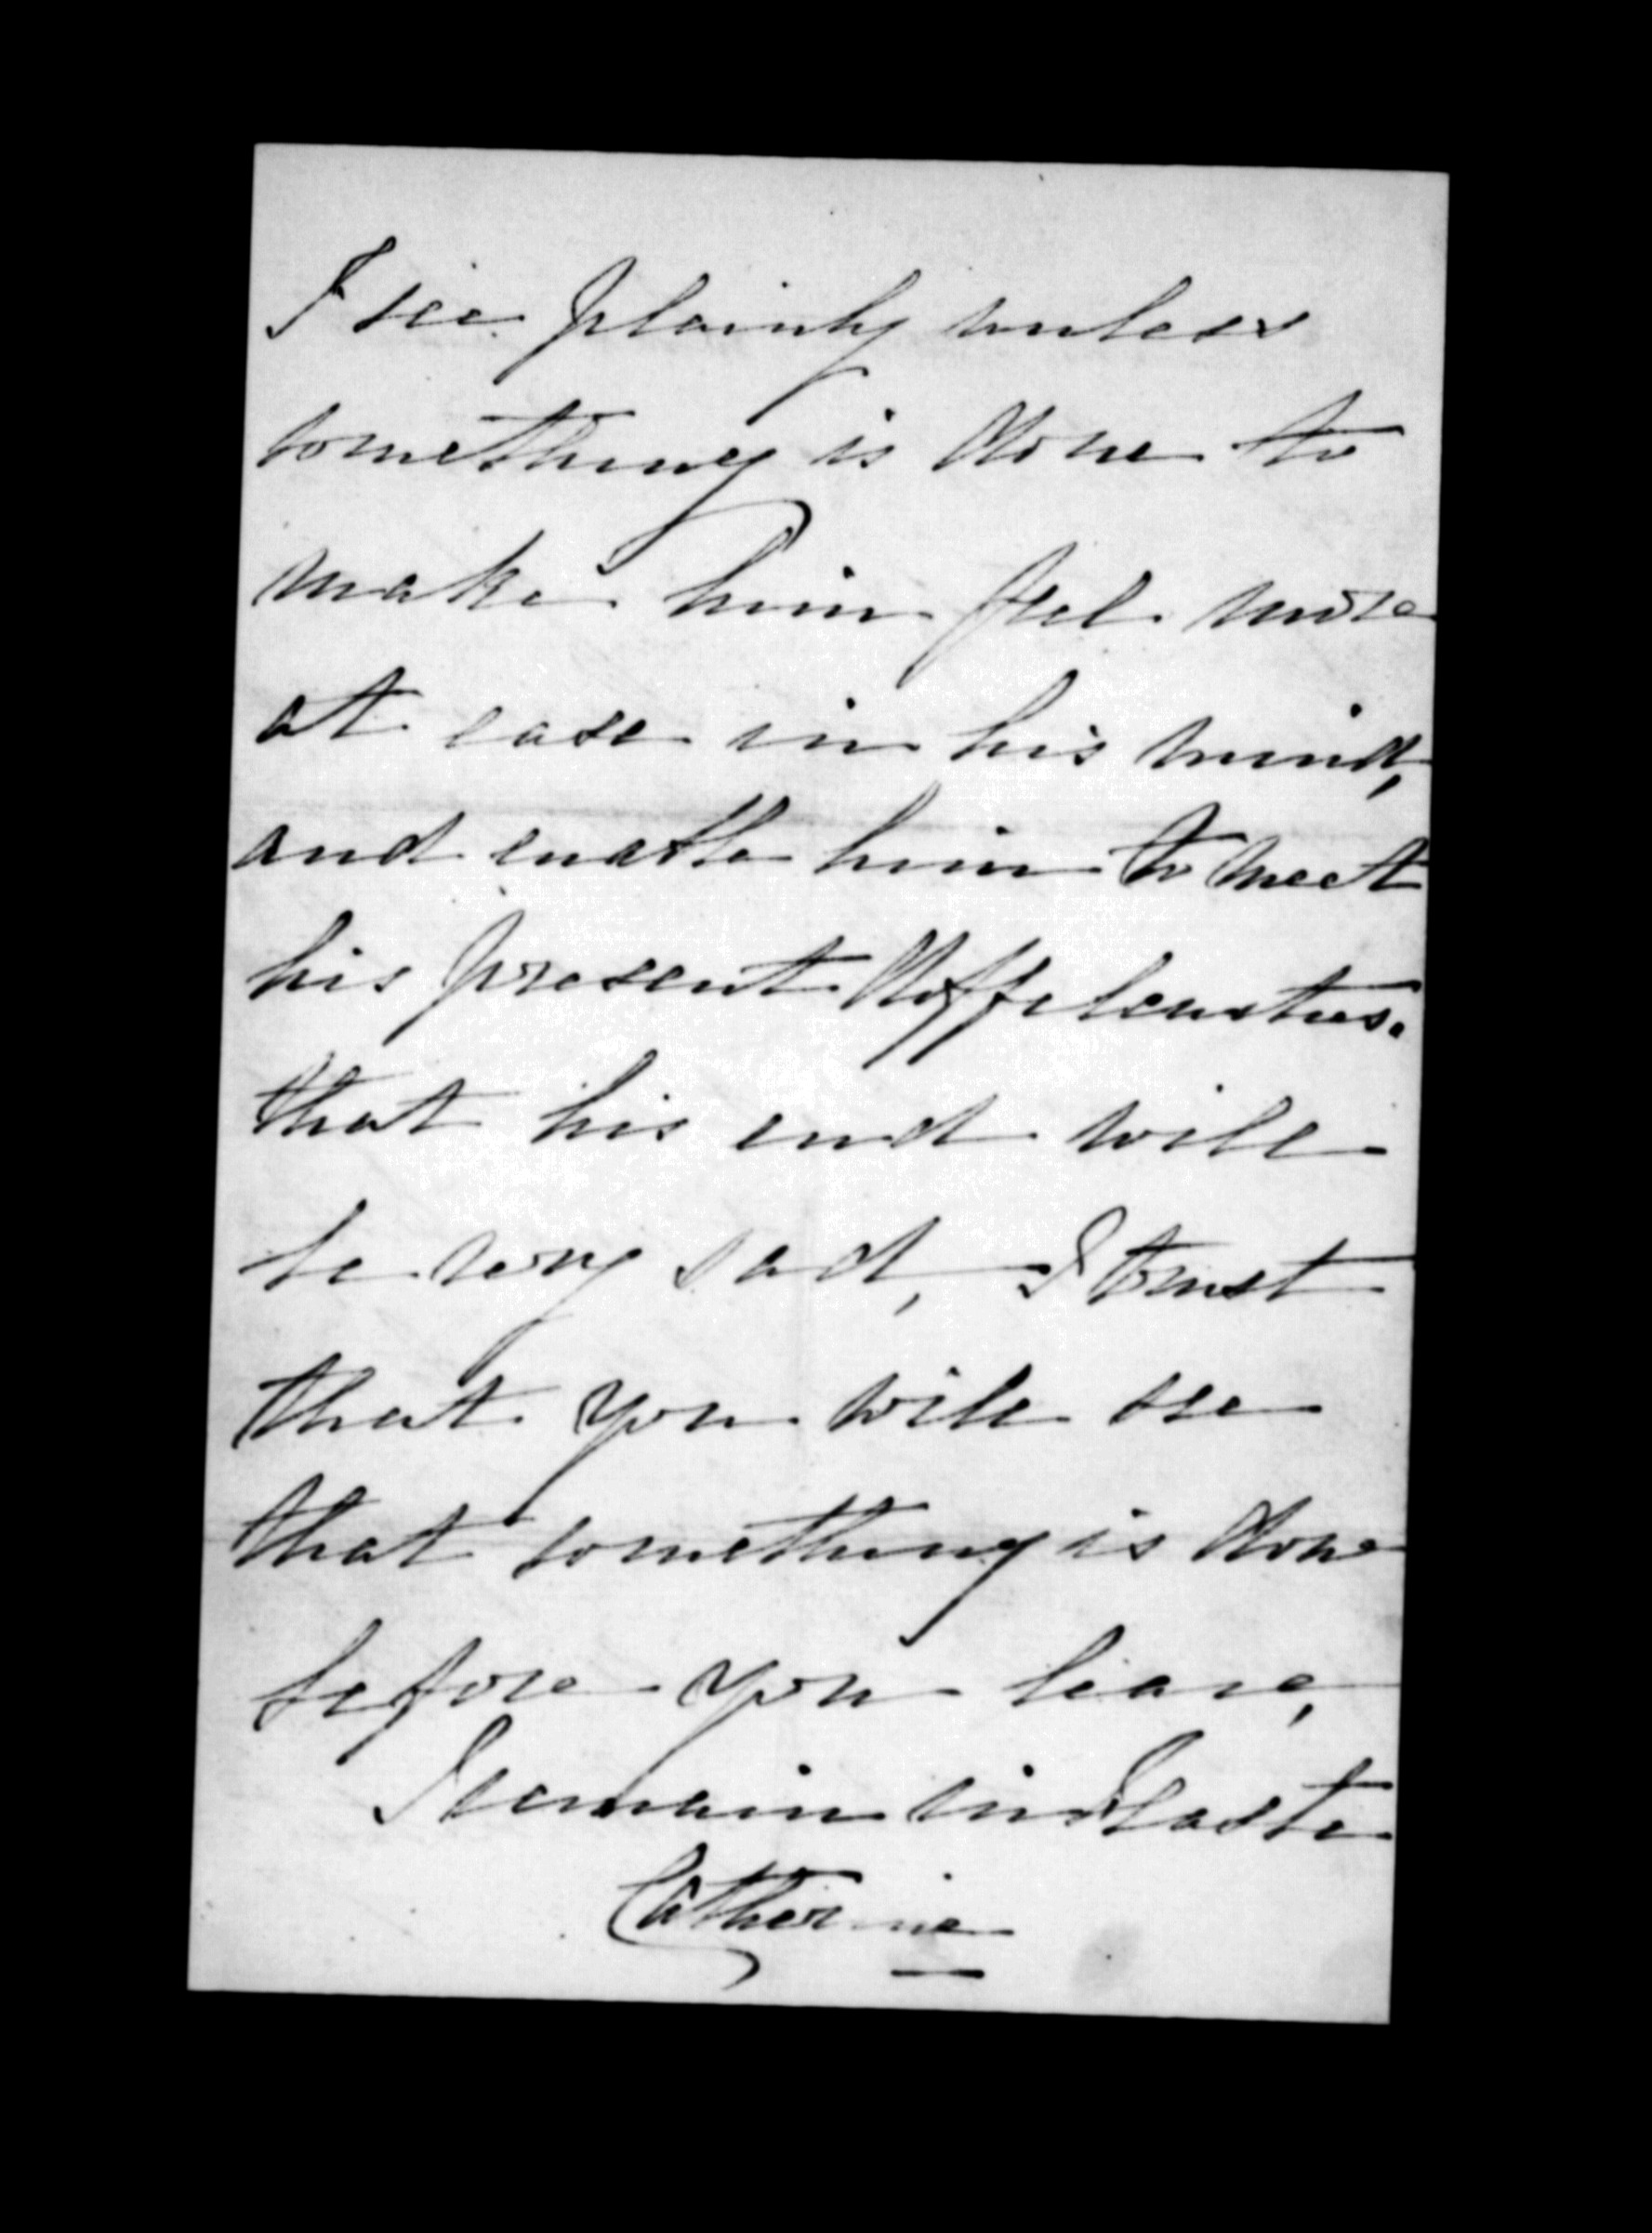 I see plainly unless
something is done to
make him feel more
at ease in his mind,
and enable him to meet
his present difficulties.
that his end will
be very sad, I trust
that you will see
that something is done
before you leave,
I remain in Haste
Catherine